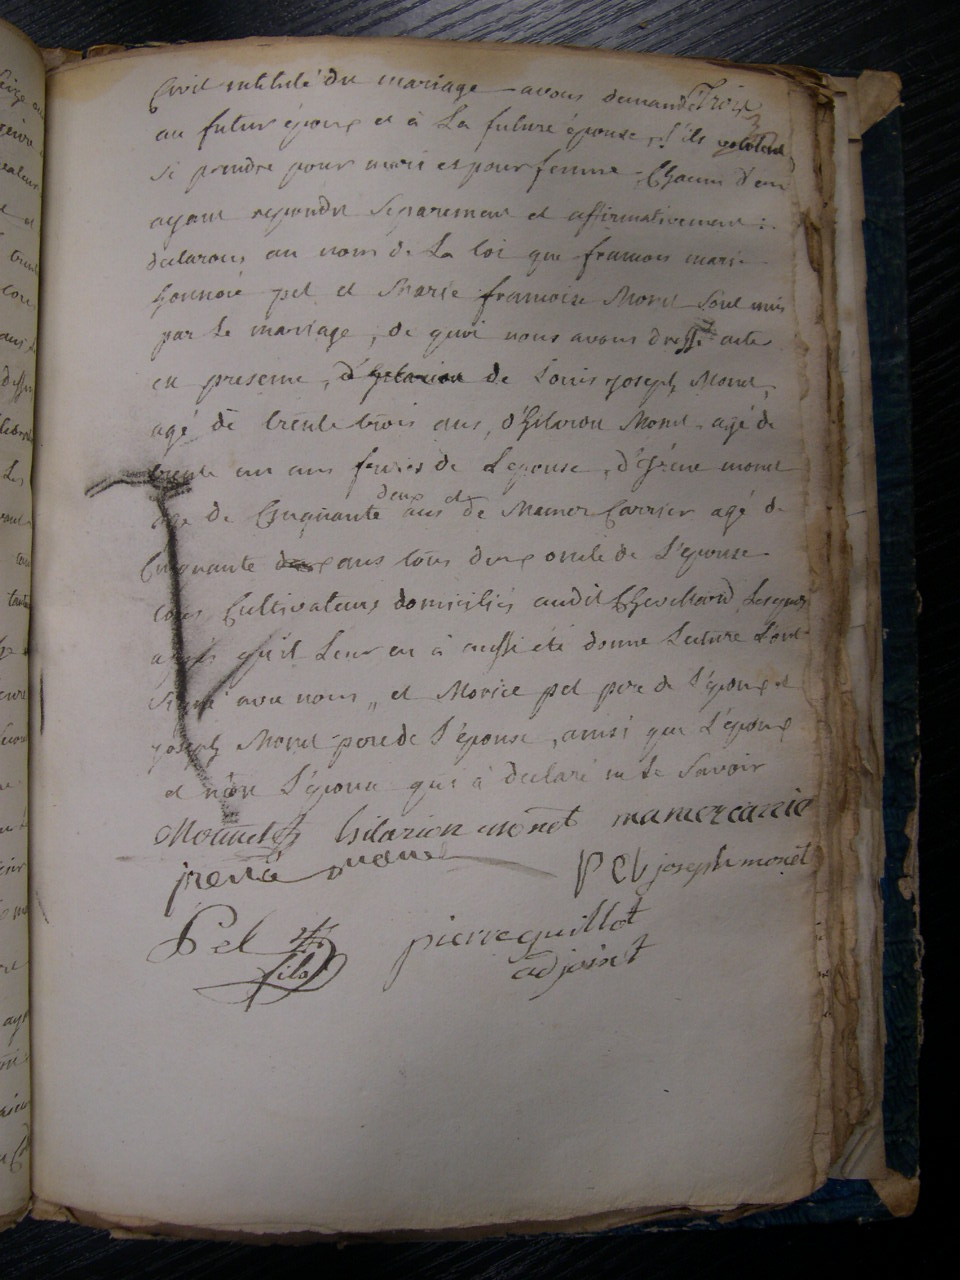 Civil intitulé du mariage avons demandé Trois
au futur époux et à La future épouse, s'ils veulent
se prendre pour mari et pour femme Chacun d'eux
ayant repondu separement et affirmativement :
declarons au nom de La loi que francois marie
honnoré pel et Marie francoise Monet sont unis
par Le mariage, de quoi nous avons dressé acte
en presence, d'hilarion de Louis joseph Monet,
agé de trente trois ans, d'hilarion Monet agé de
trente un ans freres de L'epouse, d'Iréné monet
deux et
agé de Cinquante ans de Mamer Carrier agé de
Cinquante deux ans tous deux oncle de L'épouse
tous Cultivateurs domiciliés audit Chevillard Lesquels
après qu'il Leur en à aussi été donné Lecture L'ont
signé avec nous, et Morice pel pere de L'époux et
joseph Monet pere de L'épouse, ainsi que L'époux
et non L'épouse qui à declaré ne Le savoir
hilarion monet mamer carrie
irené monet Pel joseph monet
Pel fils pierre guillot
adjoint